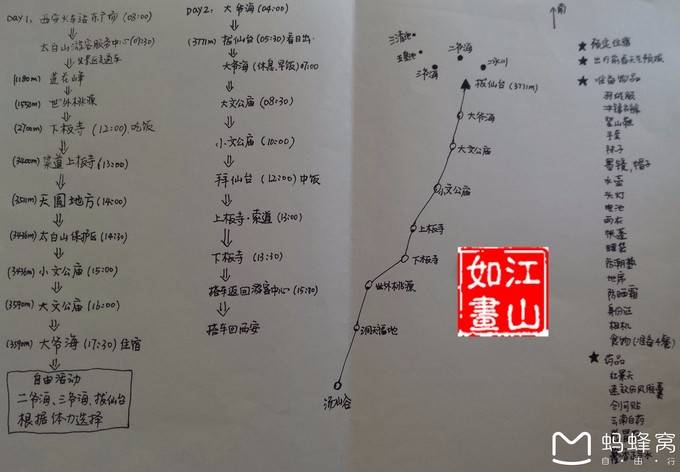 DAY1、西安火车站东广场 (08:00)
太白山游客服务中心 (09:30)
(1180m) 莲花山峰
(1550m) 世外桃源
下板寺 (12:00) 吃饭
索道上板寺 (13:00)
(3511m) 天圆地方 (14:00)
太白山保护区 (14:30)
小文公庙 (15:00)
(3590m) 大文公庙 (16:00)
大爷海 (17:30) 住宿
自由活动
二爷海、三爷海、拔仙台
根据体力选择
DAY2: 大爷海 (04:00)
(3771m) 拔仙台 (05:30) 看日出
大爷海 (休息、早饭) 07:00
大文公庙 (08:30)
小文公庙 (10:00)
拜仙台 (12:00) 中饭
上板寺·索道 (13:00)
下板寺 (13:30)
搭车返回游客中心 (15:30)
搭车回西安
南
三清池
玉皇池
二爷海
三爷海
拔仙台 (3771m)
大爷海
大文公庙
小文公庙
上板寺
下板寺
世外桃源
洞天福地
汤峪谷
江山
如畫
★ 预定住宿
★ 出行前看天气预报
★ 准备物品
冲锋衣裤
登山鞋
手套
袜子
墨镜、帽子
水壶
头灯
电池
雨衣
帐篷
睡袋
防潮垫
地席
防晒霜
身份证
相机
食物 (准备4餐)
★ 药品
红景天
创可贴
云南白药
蚂蜂窝
自由行